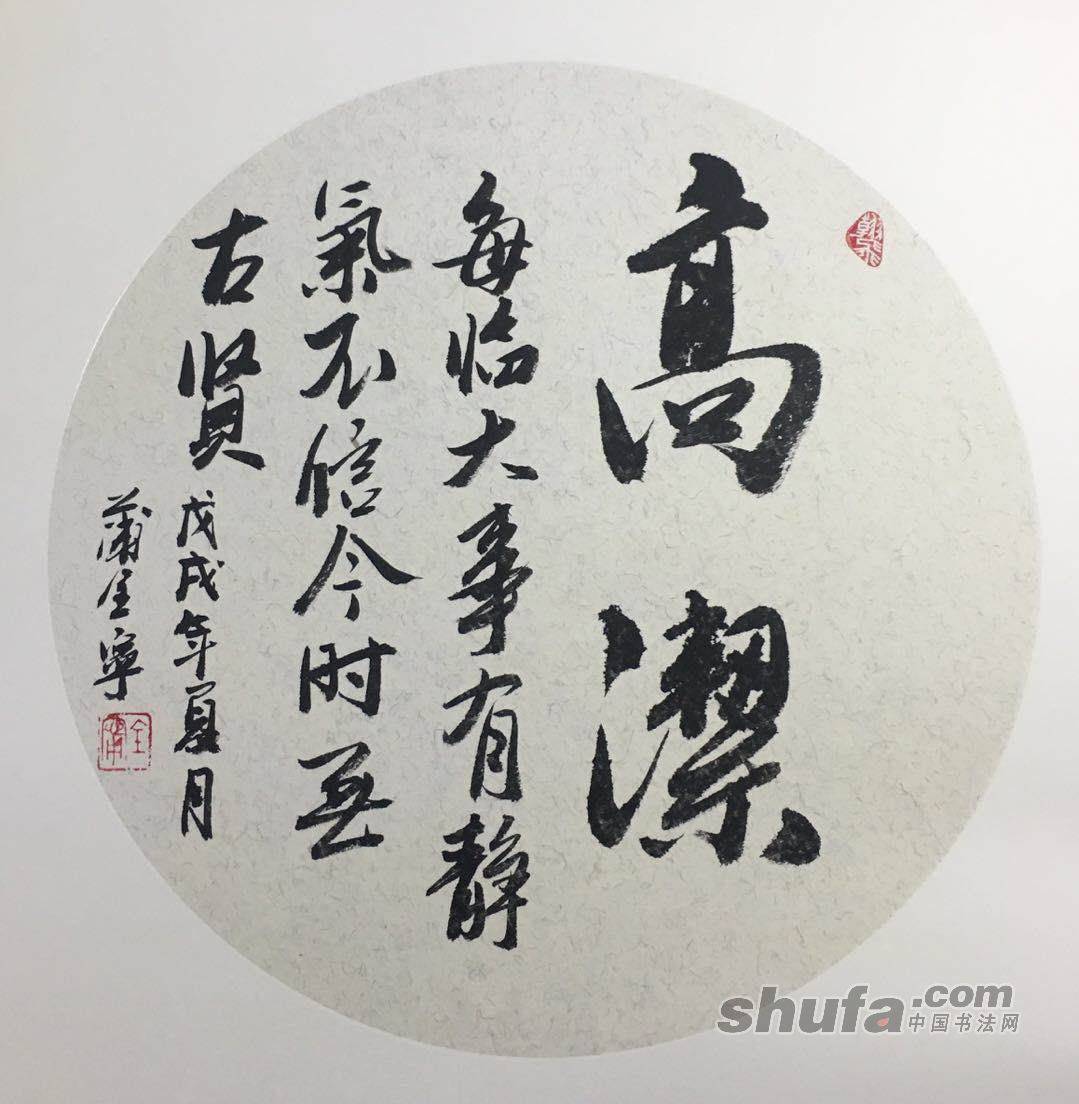 高潔
每临大事有静
氣不信今时無
古贤
戊戌年夏月
蒲全寧
shufa.com
中国书法网